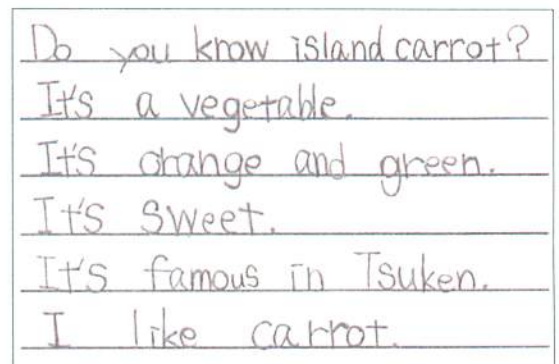 Do you know island carrot?
It's a vegetable.
It's orange and green.
It's sweet.
It's famous in Tsuken.
I like carrot.